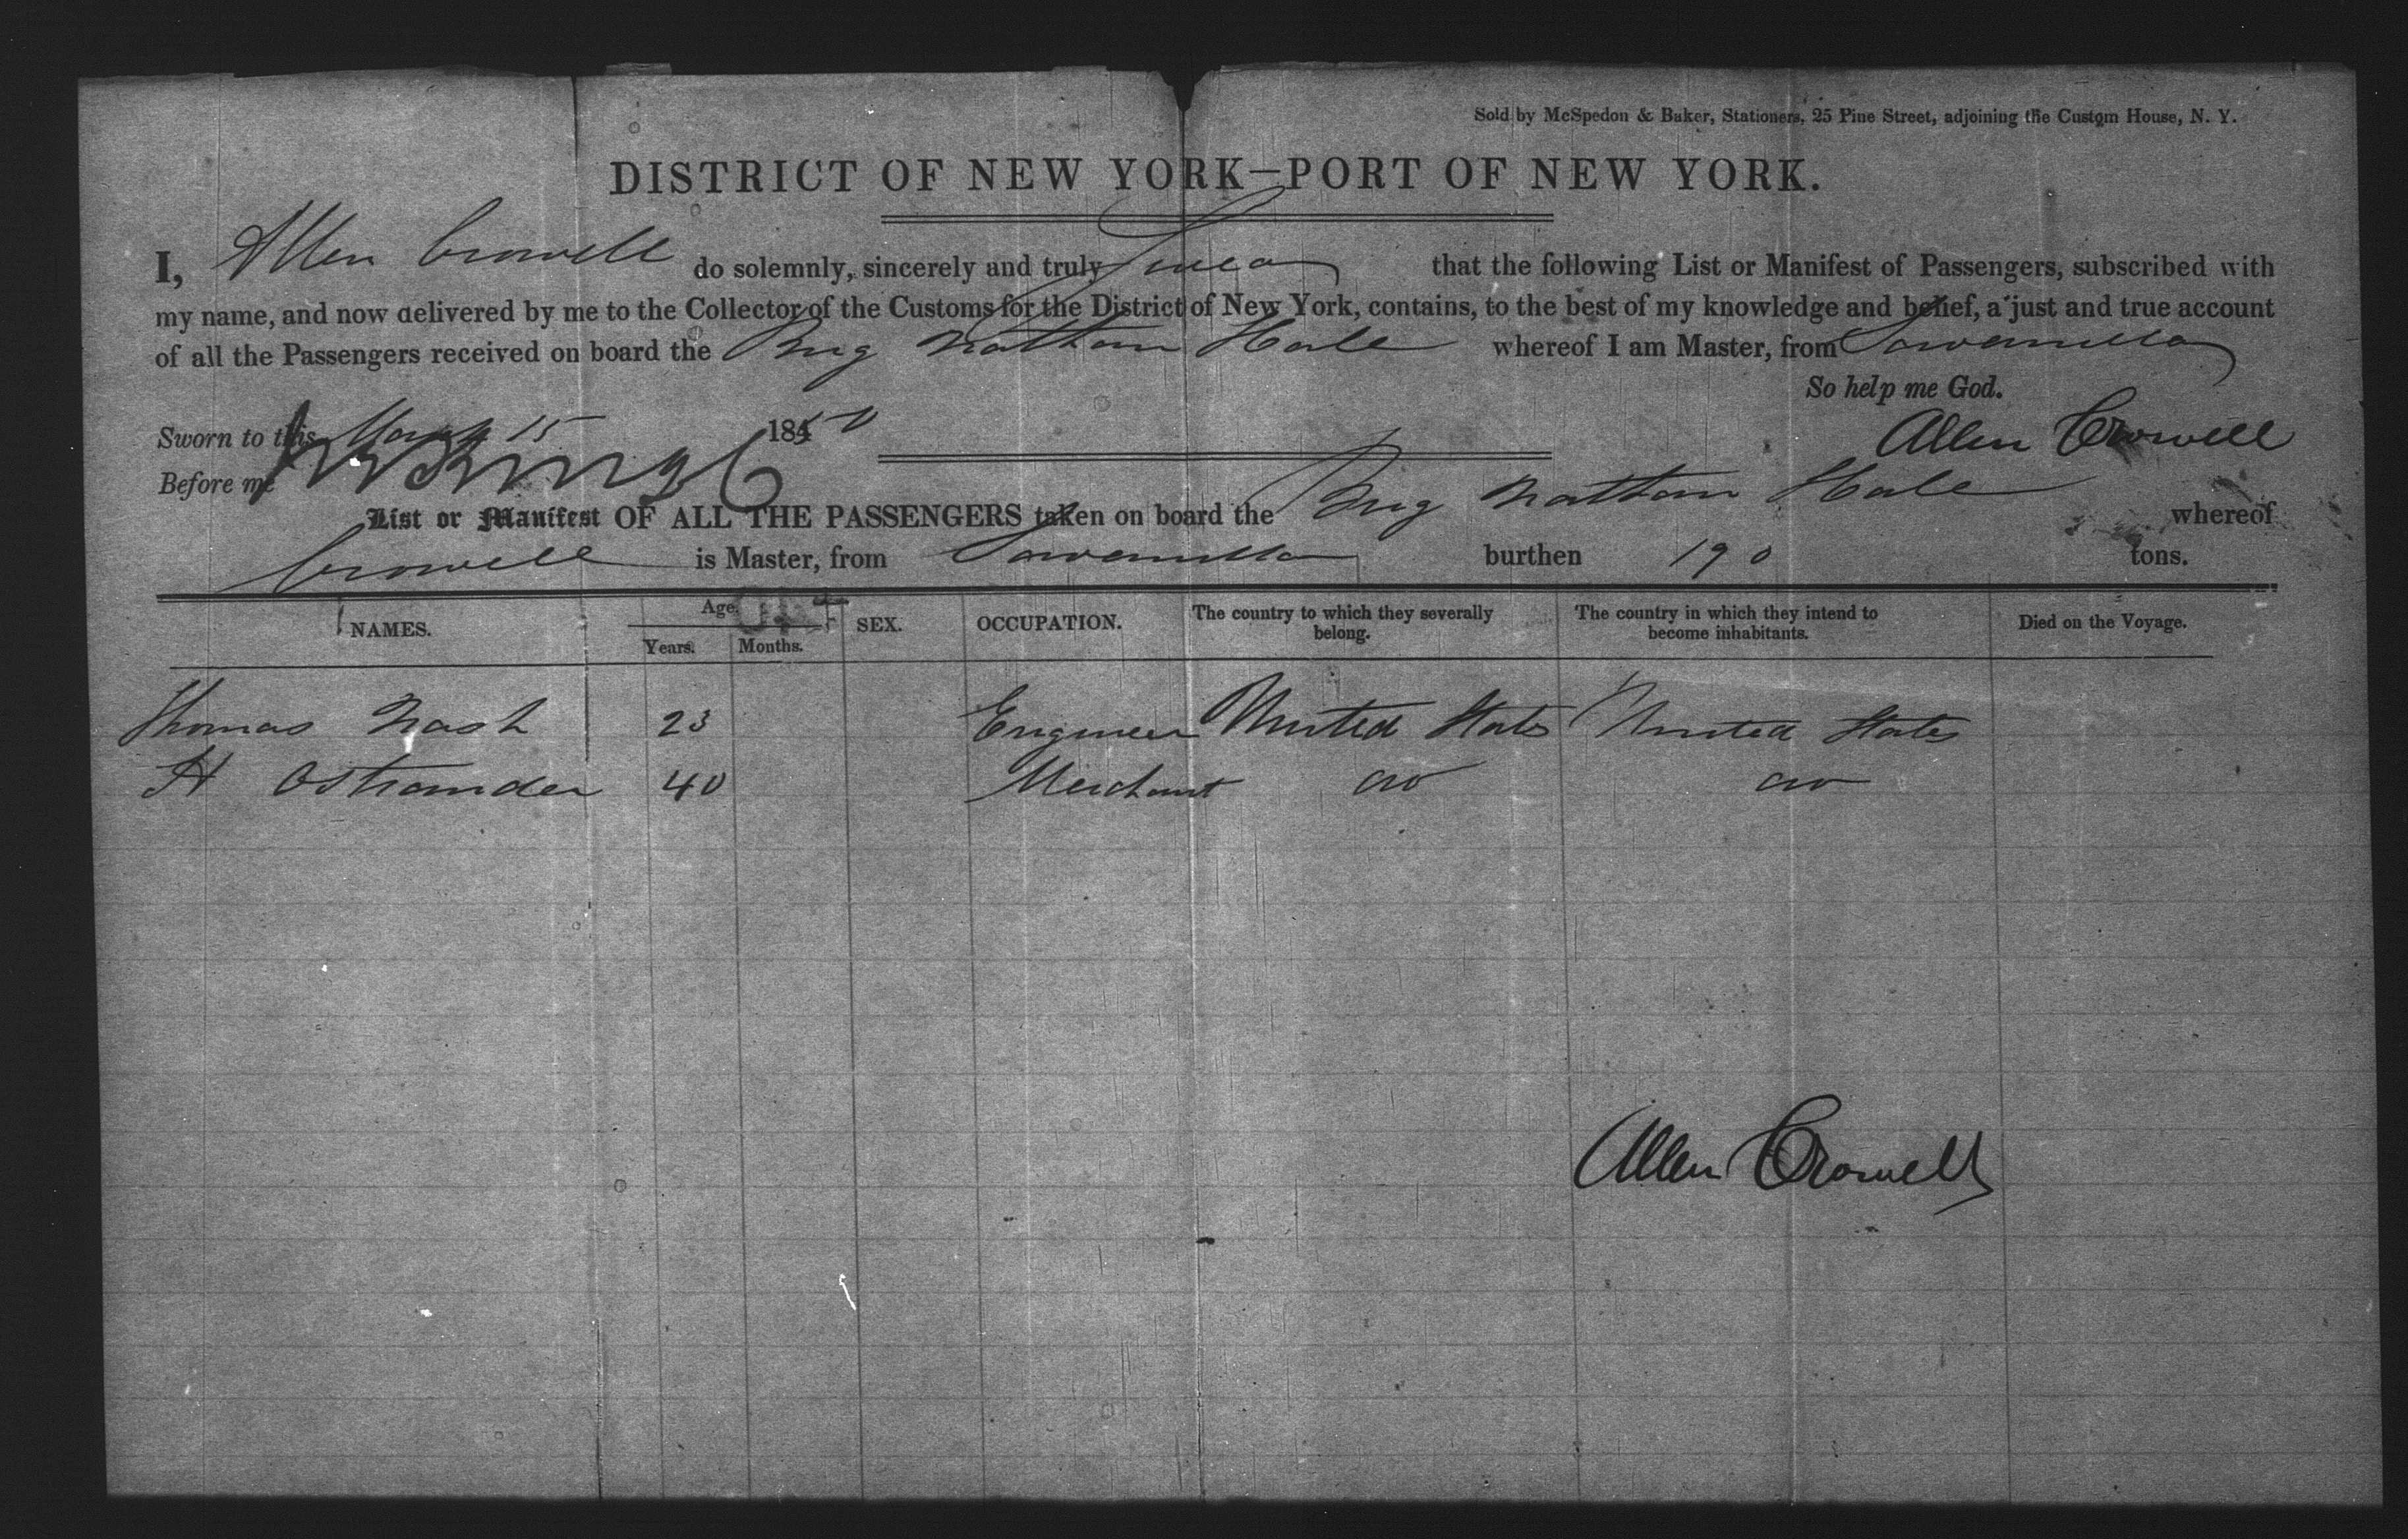 Sold by McSpedon & Baker, Stationers, 25 Pine Street, adjoining the Custom House, N. Y.
DISTRICT OF NEW YORK—PORT OF NEW YORK.
I, Allen Crowell do solemnly, sincerely and truly Swear that the following List or Manifest of Passengers, subscribed with
my name, and now delivered by me to the Collector of the Customs for the District of New York, contains, to the best of my knowledge and belief, a just and true account
of all the Passengers received on board the Brig Nathan Hale whereof I am Master, from Savanilla
So help me God.
Sworn to this March 15 1850 Allen Crowell
Before me
List or Manifest OF ALL THE PASSENGERS taken on board the Brig Nathan Hale whereof
Crowell is Master, from Savanilla burthen 190 tons.
NAMES. Age. Years. Months. SEX. OCCUPATION. The country to which they severally belong. The country in which they intend to become inhabitants. Died on the Voyage.
Thomas Nash 23 Engineer United States United States
H Ostrander 40 Merchant do do
Allen Crowell